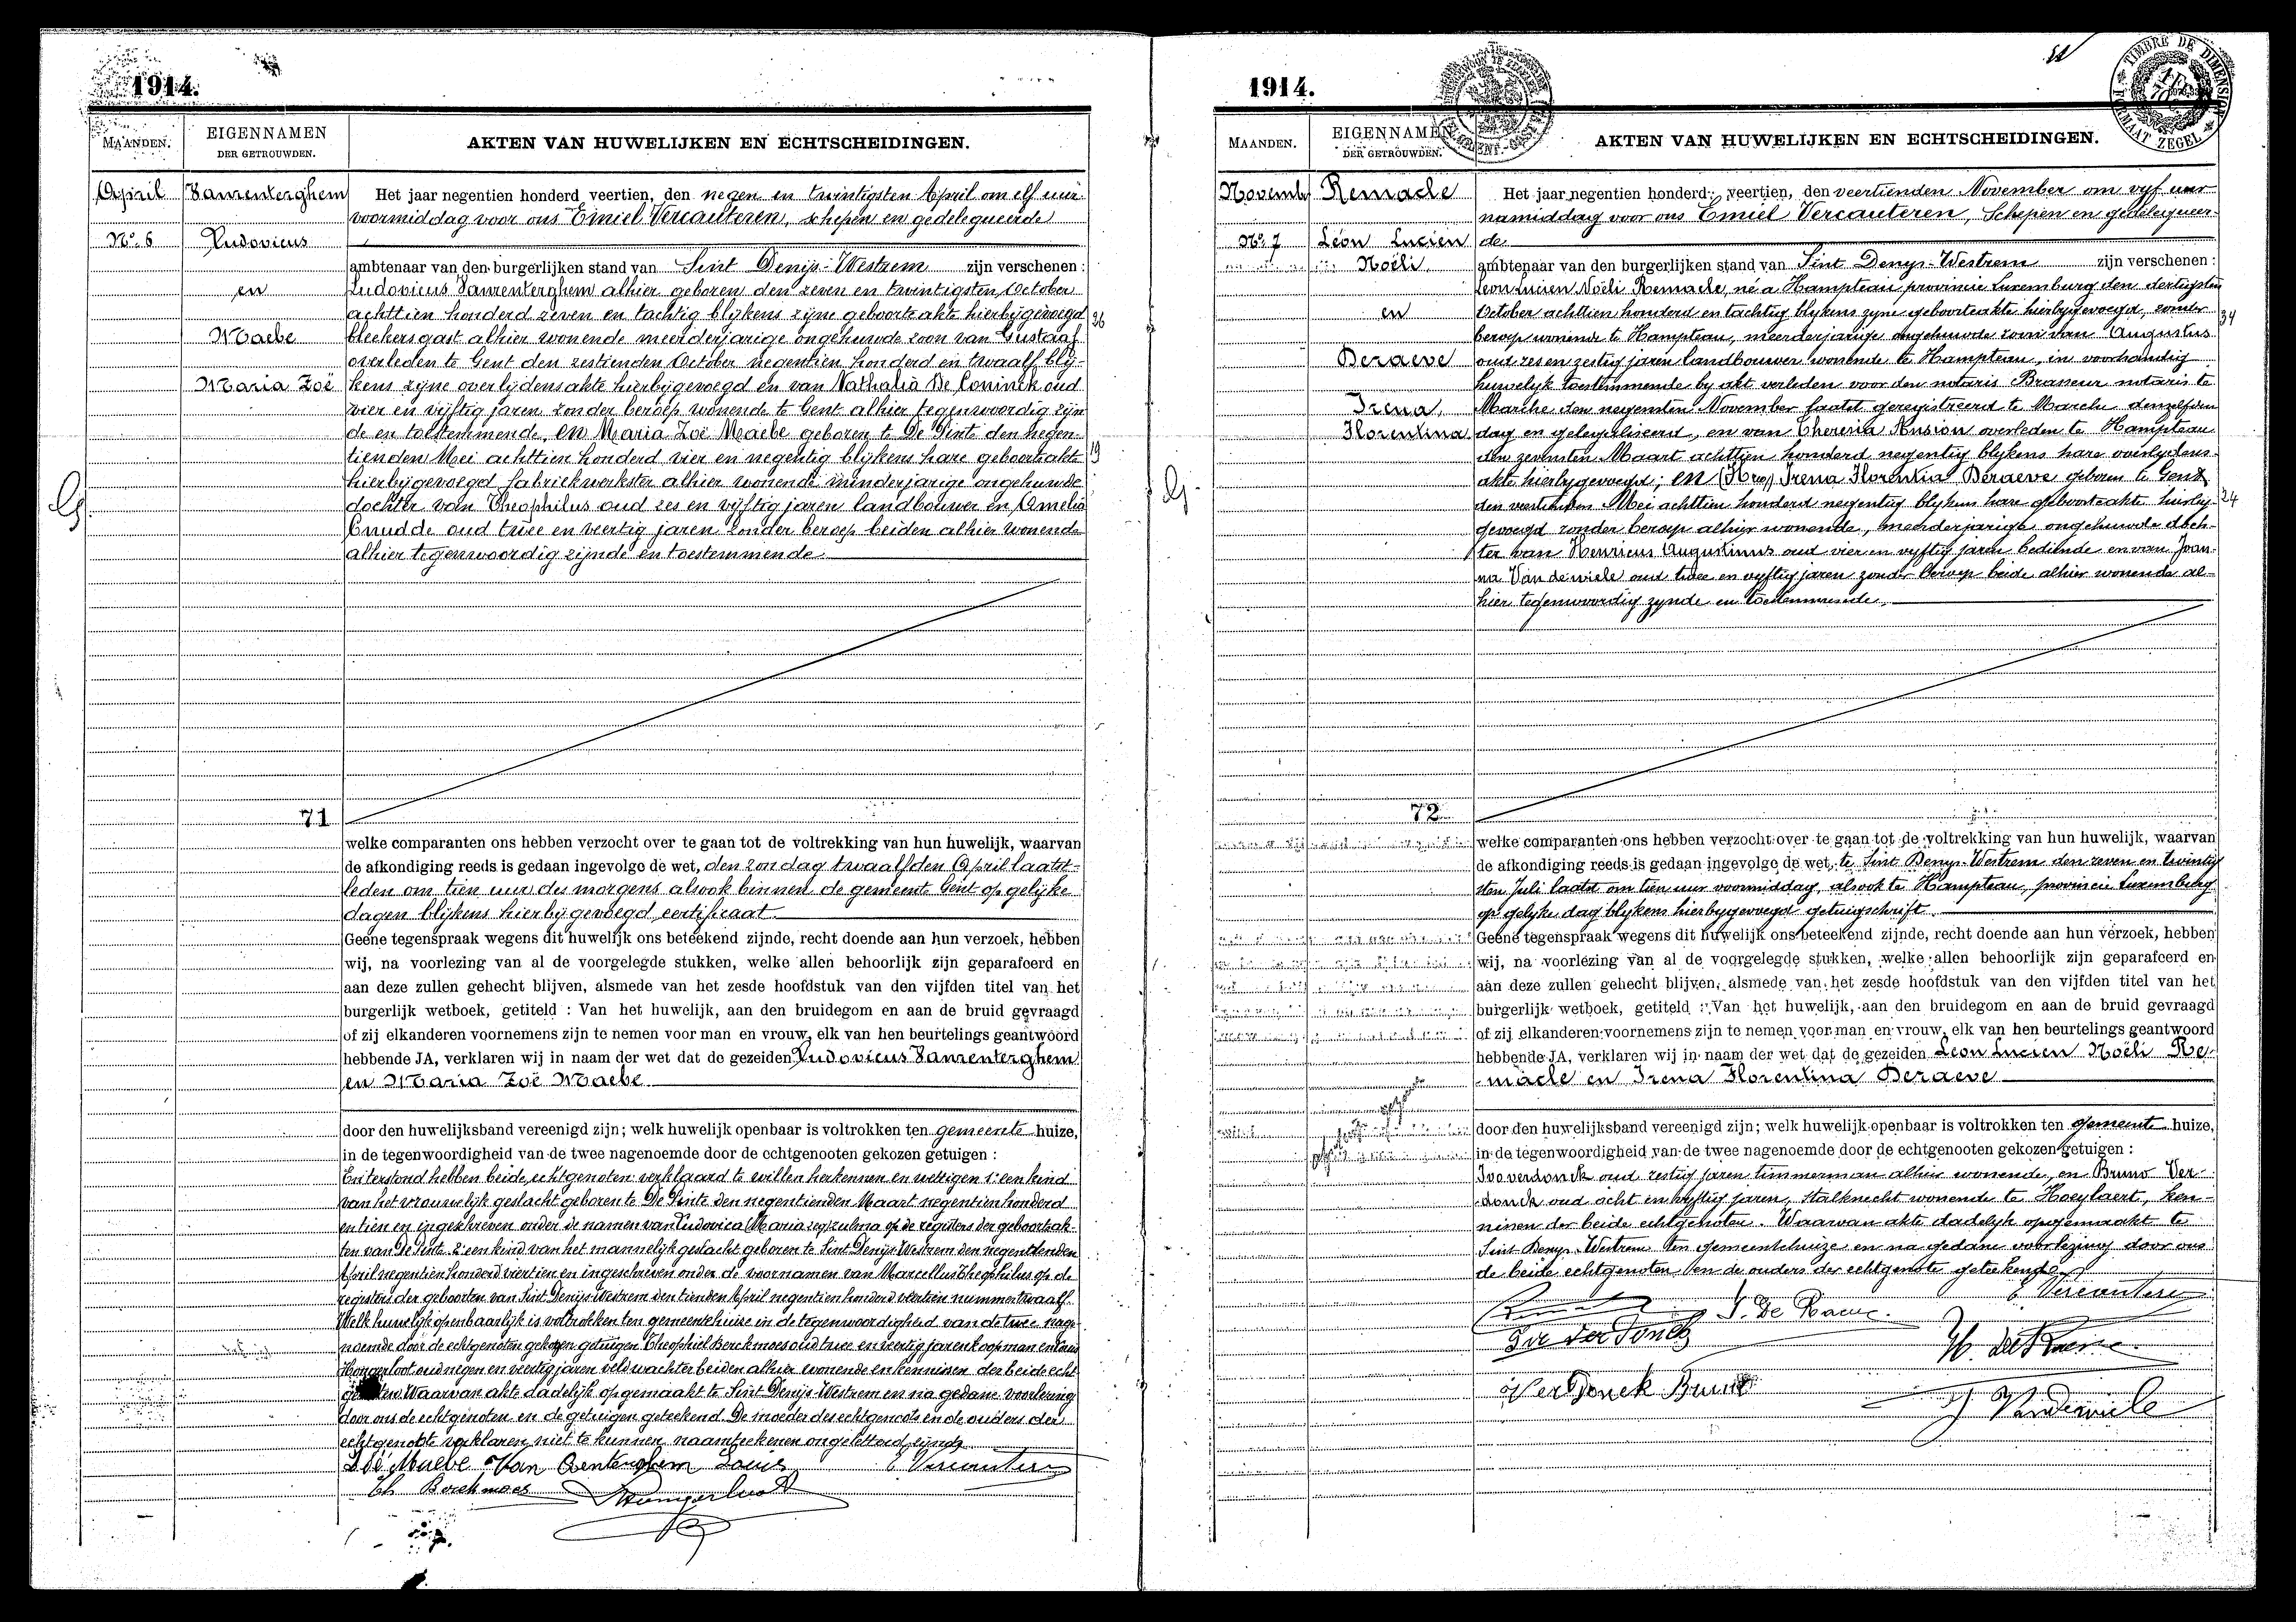 1914.
MAANDEN.
EIGENNAMEN
DER GETROUWDEN.
AKTEN VAN HUWELIJKEN EN ECHTSCHEIDINGEN.
April
No. 6
Ludovicus
en
Maebe
Maria Zoë
Het jaar negentien honderd veertien, den negen en twintigsten April om elf uur
voormiddag voor ons Emiel Vercauteren, schepen en gedelegueerde
ambtenaar van den burgerlijken stand van Sint Denijs-Westrem zijn verschenen :
Ludovicus alhier geboren den zeven en twintigsten October
achttien honderd zeven en tachtig blijkens zijne geboorteakte hierbijgevoegd
bleekersgast alhier wonende meerderjarige ongehuwde zoon van Gustaaf
overleden te Gent den zestienden October negentien honderd en twaalf blij-
kens zijne overlijdensakte hierbijgevoegd en van Nathalia De Coninck oud
vier en vijftig jaren zonder beroep wonende te Gent alhier tegenwoordig zijn
de en toestemmende, en Maria Zoë Maebe geboren te De Pinte den negen-
tienden Mei achttien honderd vier en negentig blijkens hare geboorteakte
hierbijgevoegd fabriekwerkster alhier wonende minderjarige ongehuwde
dochter van Theophilus oud zes en vijftig jaren landbouwer en Amelia
Cnudde oud twee en veertig jaren zonder beroep beiden alhier wonende
alhier tegenwoordig zijnde en toestemmende.
71
welke comparanten ons hebben verzocht over te gaan tot de voltrekking van hun huwelijk, waarvan
de afkondiging reeds is gedaan ingevolge de wet, den zondag twaalfden April laatst-
leden om tien uur des morgens alsook binnen de gemeente Gent op gelijke
dagen blijkens hierbijgevoegd certificaat
Geene tegenspraak wegens dit huwelijk ons beteekend zijnde, recht doende aan hun verzoek, hebben
wij, na voorlezing van al de voorgelegde stukken, welke allen behoorlijk zijn geparafeerd en
aan deze zullen gehecht blijven, alsmede van het zesde hoofdstuk van den vijfden titel van het
burgerlijk wetboek, getiteld : Van het huwelijk, aan den bruidegom en aan de bruid gevraagd
of zij elkanderen voornemens zijn te nemen voor man en vrouw, elk van hen beurtelings geantwoord
hebbende JA, verklaren wij in naam der wet dat de gezeiden Ludovicus
en Maria Zoë Maebe
door den huwelijksband vereenigd zijn; welk huwelijk openbaar is voltrokken ten gemeente huize,
in de tegenwoordigheid van de twee nagenoemde door de echtgenooten gekozen getuigen :
En terstond hebben beide echtgenoten verklaard te willen herkennen en wettigen 1: een kind
van het vrouwelijk geslacht geboren te De Pinte den negentienden Maart negentien honderd
en tien en ingeschreven onder de namen van Ludovica Maria op de registers der geboorteak-
ten van De Pinte. 2: een kind van het mannelijk geslacht geboren te Sint Denijs-Westrem den negentienden
April negentien honderd viertien en ingeschreven onder de voornamen van Marcellus Theophilus op de
registers der geboorten van Sint Denijs-Westrem den tienden April negentien honderd veertien nummer twaalf.
Welk huwelijk openbaarlijk is voltrokken ten gemeentehuize in de tegenwoordigheid van de twee nage-
noemde door de echtgenoten gekozen getuigen Theophiel Berckmoes oud twee en veertig jaren koopman en
oud negen en veertig jaren veldwachter beiden alhier wonende en kennissen der beide echt
Waarvan akte dadelijk opgemaakt te Sint Denijs-Westrem en na gedane voorlezing
door ons de echtgenoten en de getuigen geteekend. De moeder des echtgenoots en de ouders der
echtgenoote verklaren niet te kunnen naamteekenen ongeletterd zijnde
Zoë Maebe Louis E Vercauteren
Th Berckmoes
36
19
1914.
TIMBRE DE DIMENSION
FORMAAT ZEGEL
MAANDEN.
EIGENNAMEN
DER GETROUWDEN.
AKTEN VAN HUWELIJKEN EN ECHTSCHEIDINGEN.
Novemb
No. 7
Remacle
Léon Lucien
Noëli
en
Deraeve
Irena
Florentina
Het jaar negentien honderd veertien, den veertienden November om vyf uur
namiddag voor ons Emiel Vercauteren, Schepen en gedelegueer-
de
ambtenaar van den burgerlijken stand van Sint Denys-Westrem zijn verschenen :
Leon Lucien Noëli Remacle, né a Hampteau provincie Luxemburg den dertigsten
October achttien honderd en tachtig blykens zyne geboorteakte hierbygevoegd, zonder
beroep wonende te Hampteau, meerderjarige ongehuwde zoon van Augustus
oud zes en zestig jaren landbouwer wonende te Hampteau, in voorhandig
huwelyk toestemmende by akt verleden voor den notaris Brasseur notaris te
Marche den negensten November laatst geregistreerd te Marche denzelfden
dag en gelegaliseerd, en van Theresia overleden te Hampteau
den zevensten Maart achttien honderd negentig blykens hare overlydens-
akte hierbygevoegd; en Irena Florentia Deraeve geboren te Gent
den veertienden Mei achttien honderd negentig blykens hare geboorteakte hierby-
gevoegd zonder beroep alhier wonende, meerderjarige ongehuwde doch-
ter van Henricus Augustinus oud vier en vyftig jaren bediende en van Joan-
na Van de wiele oud twee en vyftig jaren zonder beroep beide alhier wonende al-
hier tegenwoordig zynde en toestemmende.
34
24
72
welke comparanten ons hebben verzocht over te gaan tot de voltrekking van hun huwelijk, waarvan
de afkondiging reeds is gedaan ingevolge de wet, te Sint Denys-Westrem den zeven en twintig
sten Juli laatst om tien uur voormiddag, alsook te Hampteau, provincie Luxemburg
op gelyke dag blykens hierbygevoegd getuigschrift
Geene tegenspraak wegens dit huwelijk ons beteekend zijnde, recht doende aan hun verzoek, hebben
wij, na voorlezing van al de voorgelegde stukken, welke allen behoorlijk zijn geparafeerd en
aan deze zullen gehecht blijven, alsmede van het zesde hoofdstuk van den vijfden titel van het
burgerlijk wetboek, getiteld : Van het huwelijk, aan den bruidegom en aan de bruid gevraagd
of zij elkanderen voornemens zijn te nemen voor man en vrouw, elk van hen beurtelings geantwoord
hebbende JA, verklaren wij in naam der wet dat de gezeiden Leon Lucien Noëli Re-
macle en Irena Florentina Deraeve
door den huwelijksband vereenigd zijn; welk huwelijk openbaar is voltrokken ten gemeente huize,
in de tegenwoordigheid van de twee nagenoemde door de echtgenooten gekozen getuigen :
Ivo verdonck oud zestig jaren timmerman alhier wonende, en Bruno Ver-
donck oud acht en vyftig jaren, Stalknecht wonende te Hoeylaert, ken-
nissen der beide echtgenoten. Waarvan akte dadelyk opgemaakt te
Sint Denys-Westrem ten gemeentehuize en na gedane voorlezing door ons
de beide echtgenoten en de ouders der echtgenote geteekend
E Vercauteren
I. De Raeve.
Ivo Ver Donck
H. De Raeve
Ver Donck Bruno
J Vandewiele